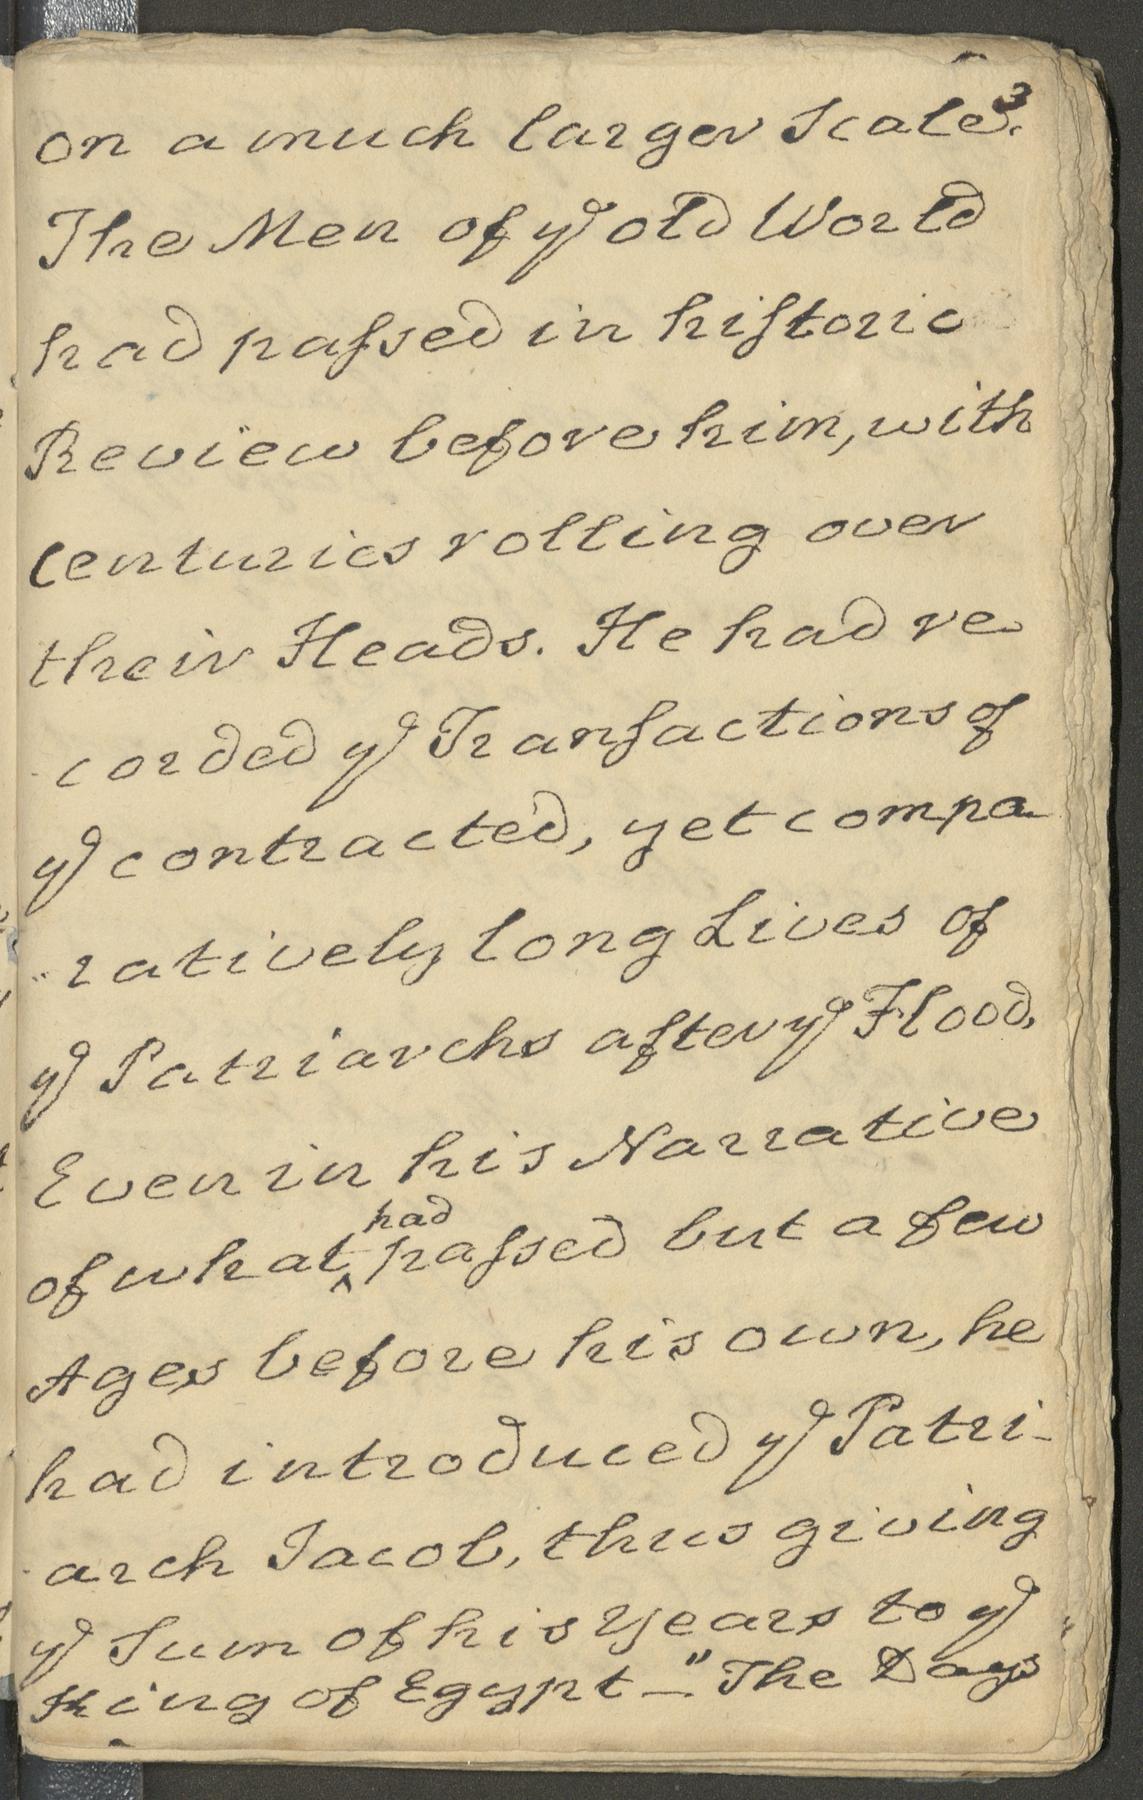 3
on a much larger Scale.
The Men of yᵉ old World
had paſsed in hiſtoric
Review before him, with
Centuries rolling over
their Heads. He had re
corded yᵉ Tranſactions of
yᵉ contracted, yet compa-
ratively long Lives of
yᵉ Patriarchs after yᵉ Flood,
Even in his Narrative
had
of what ^ paſsed but a few
Ages before his own, he
had introduced yᵉ Patri-
arch Jacob, thus giving
yᵉ Sum of his Years to yᵉ
King of Egypt—"The Days